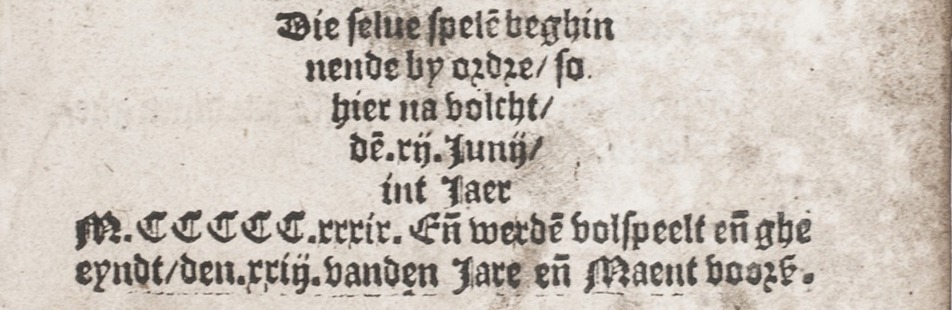 Die selue spelē beghin
nende by ordre/ so
hier na volcht/
dē.xij. Junij/
int Jaer
M.CCCCC.xxxix. Eñ werdē volspeelt eñ ghe
eyndt/den.xxiij.vanden Jare eñ Maent voorß.